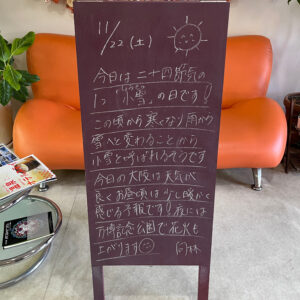 11/22(土)
今日は二十四節気の
1つ「小雪」の日です!
この頃から寒くなり雨から
雪へと変わることから
小雪と呼ばれるそうです
今日の大阪は天気が
良くお昼頃は少し暖かく
感じる予報です!夜には
万博記念公園で花火も
上がります